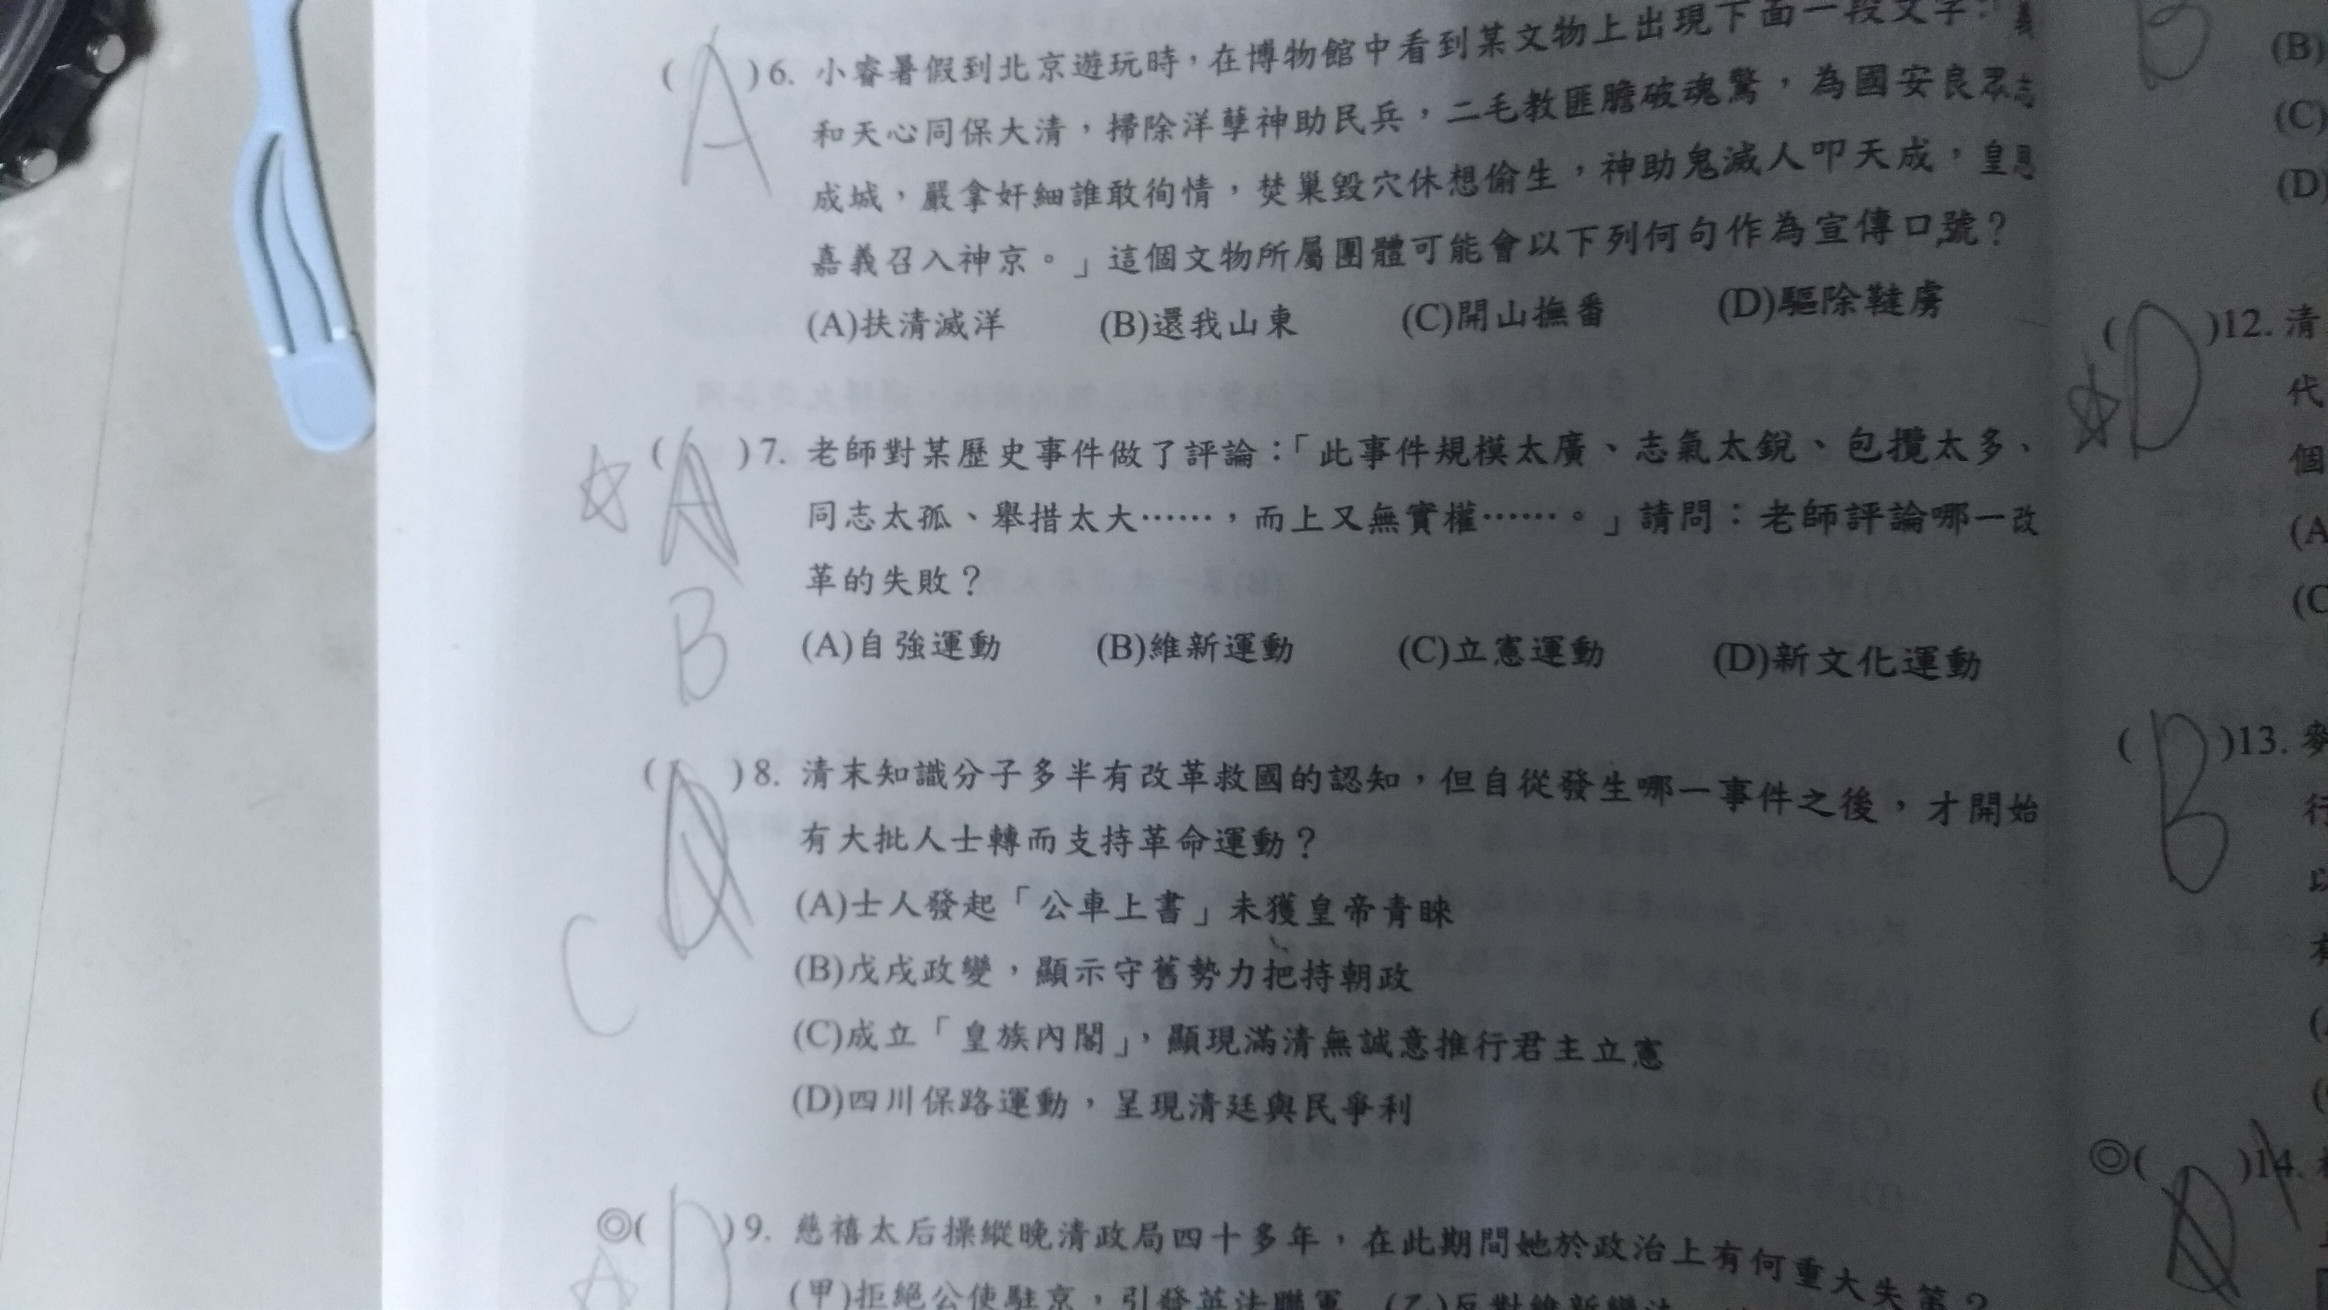 (A)6. 小睿暑假到北京遊玩時，在博物館中看到某文物上出現下面一段文字：「義
和天心同保大清，掃除洋孽神助民兵，二毛教匪膽破魂驚，為國安良眾志
成城，嚴拿奸細誰敢徇情，焚巢毀穴休想偷生，神助鬼滅人叩天成，皇恩
嘉義召入神京。」這個文物所屬團體可能會以下列何句作為宣傳口號？
(A)扶清滅洋 (B)還我山東 (C)開山撫番 (D)驅除韃虜
☆(A)7. 老師對某歷史事件做了評論：「此事件規模太廣、志氣太銳、包攬太多、
同志太孤、舉措太大……，而上又無實權……。」請問：老師評論哪一改
革的失敗？
B
(A)自強運動 (B)維新運動 (C)立憲運動 (D)新文化運動
(D)8. 清末知識分子多半有改革救國的認知，但自從發生哪一事件之後，才開始
有大批人士轉而支持革命運動？
(A)士人發起「公車上書」未獲皇帝青睞
C
(B)戊戌政變，顯示守舊勢力把持朝政
(C)成立「皇族內閣」，顯現滿清無誠意推行君主立憲
(D)四川保路運動，呈現清廷與民爭利
◎(D)9. 慈禧太后操縱晚清政局四十多年，在此期間她於政治上有何重大失策？
☆
(甲)拒絕公使駐京，引發英法聯軍 (乙)反對維新變法
B
(B)
(C)
(D)
☆(D)12. 清
代
個
(A
(C
(B)13.
行
以
有
◎(D)14.